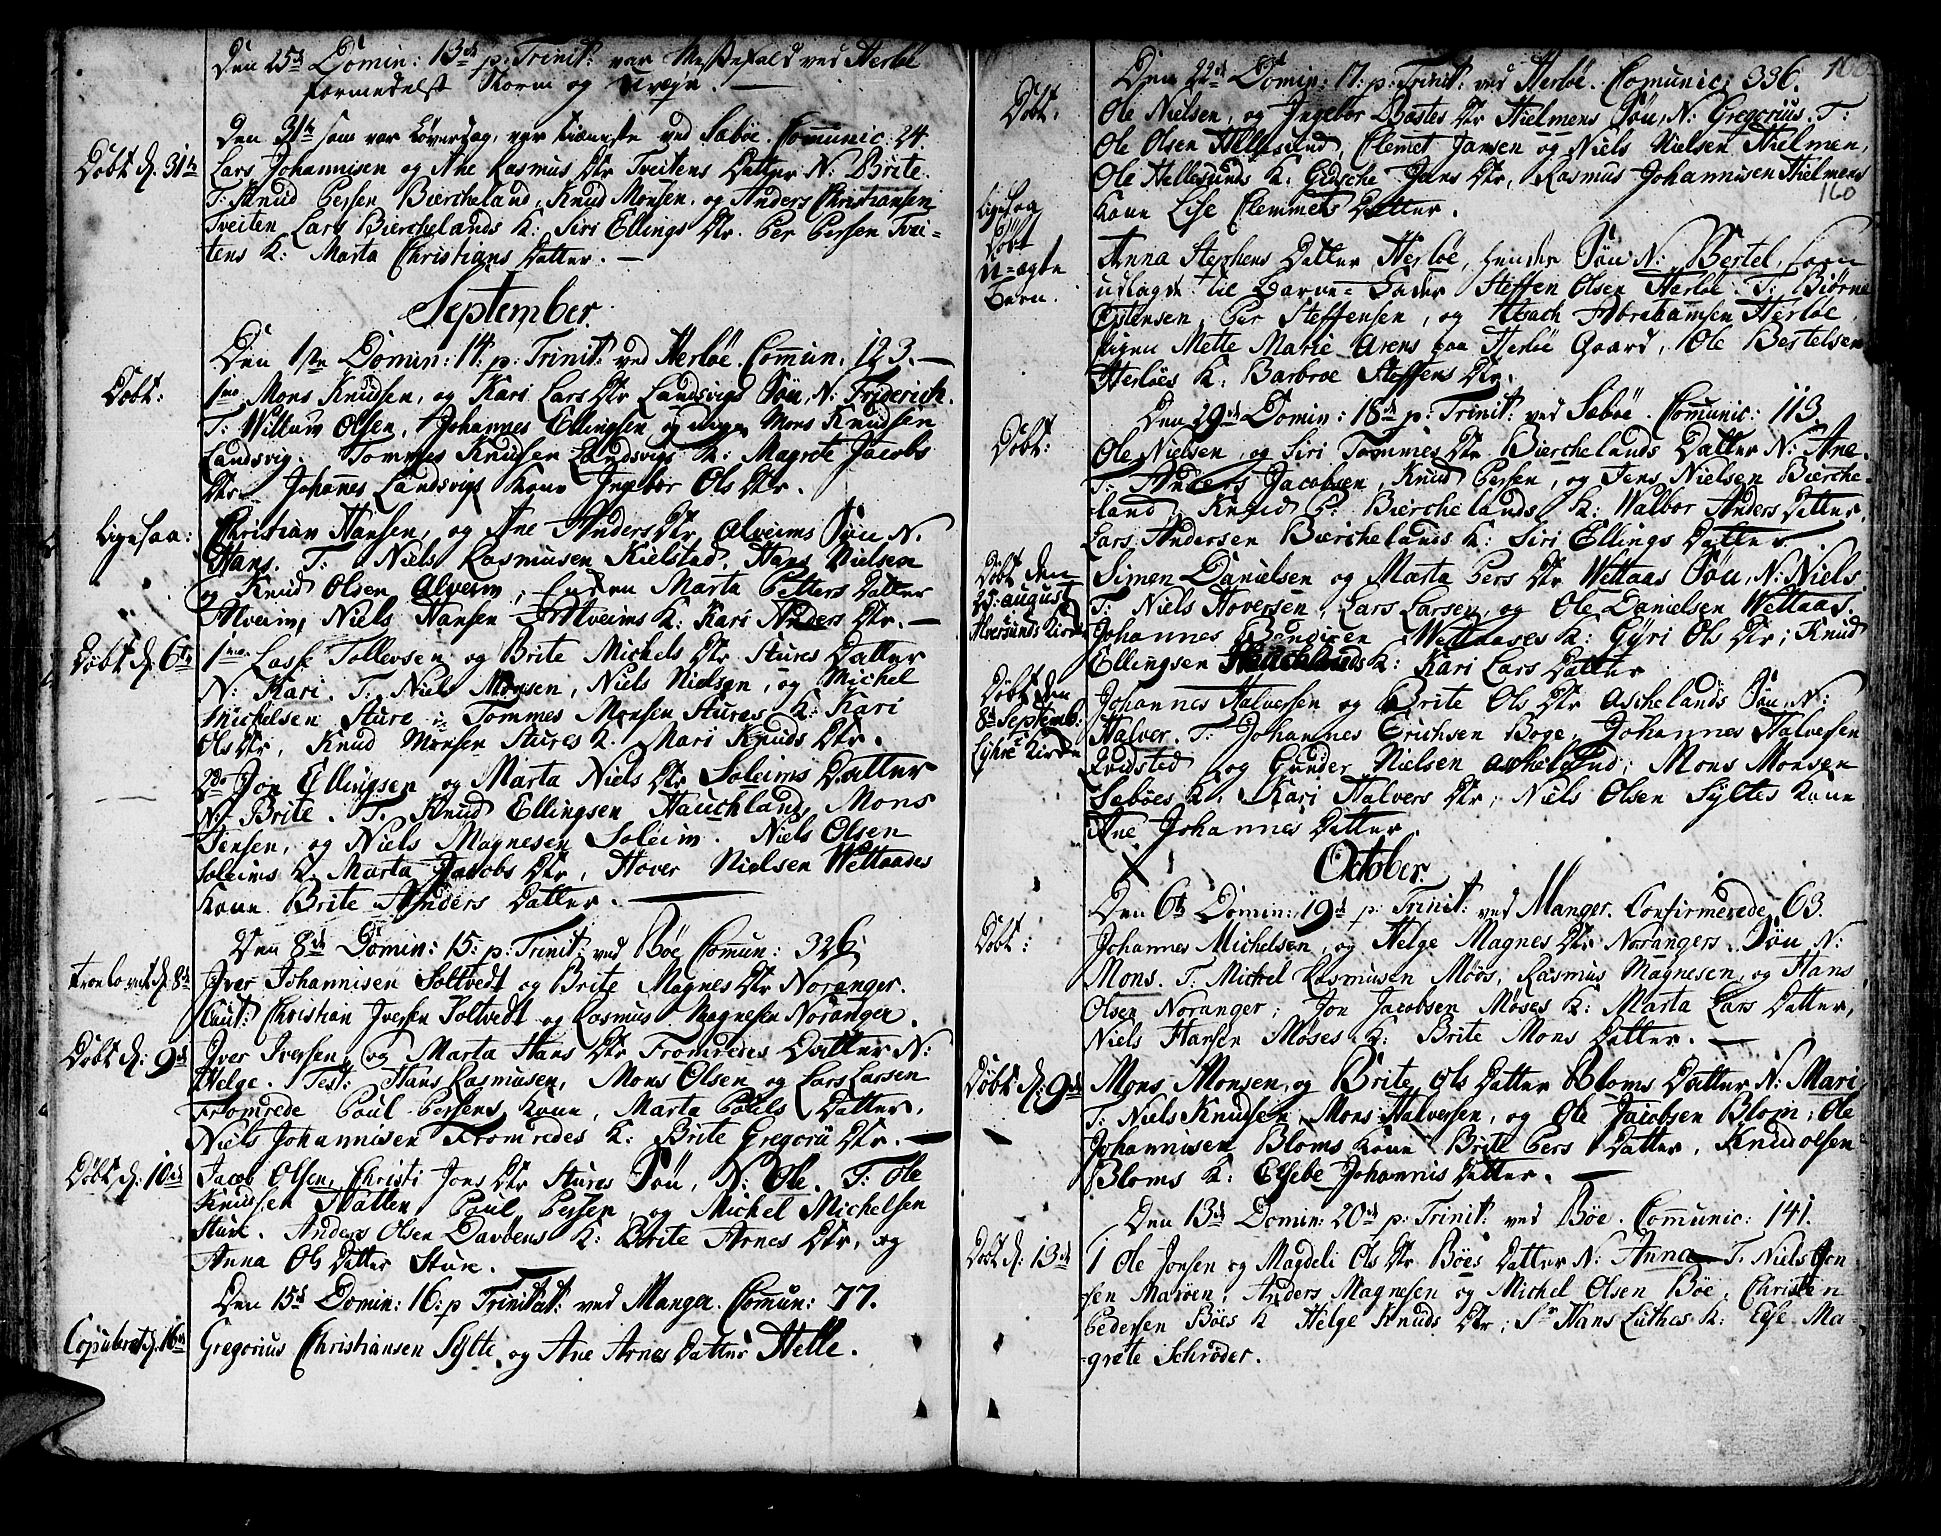 Den 25de Domin: 13de p: Trinit: var Messefald ved Herløe
formedelst Storm og Uvejr. —
Den 31te som var Løverdag, var tieneste ved Sæbøe. Comunic: 24.
Døbt d: 31te
Lars Johannisen og Ane Rasmus Dtr Tveitens Datter N: Brite.
T: Knud Persen Biercheland, Knud Monsen, og Anders Christiansen
Tveiten Lars Bierchelands K: Siri Ellings Dtr. Per Persen Tvei=
tens K: Marta Christians Datter. —
September
Den 1ste Domin: 14: p: Trinit: ved Herløe. Comun. 123. —
Døbt:
1mo Mons Knudsen, og Kari Lars Dtr Landsvigs Søn, N: Friderich.
T: Willum Olsen, Johannes Ellingsen og unge Mons Knudsen
Landsvig. Tommes Knudsen Landsvigs K: Magrete Jacobs
Dtr. Johanes Landsvigs Kone Ingebor Ols Dtr.
Ligesaa:
Christian Hansen, og Ane Anders Dtr Alveims Søn N.
Hans. T: Niels Rasmusen Kielstad, Hans Nielsen
og Knud Olsen Alveim, Enken Marta Petters Datter
Alveim, Niels Hansen Alveims K: Kari Anders Dtr. —
Døbt d: 6te
1mo. Lasse Tollevsen og Brite Michels Dtr Stures Datter
N: Kari. T: Niels Monsen, Niels Nielsen, og Michel
Michelsen Sture; Tommes Monsen Stures K: Kari
Ols Dtr, Knud Monsen Stures K. Mari Knuds Dtr.
2do Jon Ellingsen og Marta Niels Dtr Soleims Datter
N: Brite. T. Knud Ellingsen Hauchland, Mons
Jensen, og Niels Magnesen Soleim. Niels Olsen
Soleims K: Marta Jacobs Dtr, Hover Nielsen Wettaases
Kone Brite Anders Datter. —
Den 8de Domin: 15: p: Trinit: ved Bøe Comun: 326
Trolovet d: 8de
Iver Johannisen Soltvedt og Brite Magnes Dtr Noranger.
Caut: Christian Iversen Soltvedt og Rasmus Magnesen Noranger.
Døbt d: 9de
Iver Iversen og Marta Hans Dtr Fromredes Datter N:
Helge. Test: Hans Rasmusen, Mons Olsen og Lars Larsen
Fromrede Poul Persens Kone, Marta Pouls Datter,
Niels Johannisen Fromredes K: Brite Gregorii Dtr. —
Døbt d: 10de
Jacob Olsen, Christi Jons Dtr Stures Søn, N: Ole. T: Ole
Knudsen Staten Poul Persen, og Michel Michelsen
Sture. Anders Olsen Davøens K: Brite Arnes Dtr, og
Anna Ols Datter Sture. —
Den 15de Domin: 16: p Trinitat: ved Manger. Comun: 77.
Copuleret d: 16de
Gregorius Christiansen Sylte og Ane Arnes Datter Helle.
100
Den 22de Domin: 17: p: Trinit: ved Herløe. Comunic: 336.
Døbt:
Ole Nielsen, og Ingebor Bastes Dtr Hielmens Søn, N: Gregorius. T:
Ole Olsen Hellesund, Clemet Jansen og Niels Nielsen Hielmen,
Ole Hellesunds K: Gidsche Jans Dtr, Rasmus Johannisen Hielmens
160
Kone Lise Clemmets Datter.
Ligesaa
Døbt
U=ægte
Barn.
Anna Stephens Datter Herløe, hendes Søn N: Bertel, som
udlagde til Barne=Fader Steffen Olsen Herløe. T: Biørne
Estensen, Per Steffensen, og Isach Abrahamsen Herløe,
pigen Mette Marie Arens paa Herløe Gaard, Ole Bertelsen
Herløes K: Barbroe Steffens Dtr.
Den 29de Domin: 18de p: Trinit: ved Sæbøe. Comunic: 113
Døbt:
Ole Nielsen, og Siri Tommes Dtr Bierchelands Datter N: Ane.
T: Anders Jacobsen, Knud Persen, og Jens Nielsen Bierche-
land, Knud P: Bierchelands K: Walbor Anders Datter,
Lars Andersen Bierchelands K: Siri Ellings Datter
Døbt den
25: august
Alversunds Kirke
Simen Danielsen og Marta Pers Dtr Wettaas Søn, N: Niels.
T: Niels Hoversen, Lars Larsen, og Ole Danielsen Wettaas.
Johannes Bendixen Wettaases K: Gyri Ols Dtr; Knud
Ellingsen Hauchelands K: Kari Lars Datter
Døbt den
8de Septemb:
Lyhre Kirke
Johannes Halversen og Brite Ols Dtr Aschelands Søn, N:
Halver. T: Johannes Erichsen Boge, Johannes Halversen
Qvidsted og Gunder Nielsen Ascheland; Mons Monsen
Sæbøes K. Kari Halvers Dtr; Niels Olsen Syltes Kone
Ane Johannes Datter.
October
Den 6te Domin: 19de p: Trinit: ved Manger. Confirmerede 63.
Døbt:
Johannes Michelsen, og Helge Magnes Dtr Norangers Søn N:
Mons. T. Michel Rasmusen Møøs, Rasmus Magnesen, og Hans
Olsen Noranger; Jon Jacobsen Møses K: Marta Lars Datter,
Niels Hansen Møses K: Brite Mons Datter. —
Døbt d: 9de
Mons Monsen, og Brite Ols Datter Bloms Datter N: Mari
T: Niels Knudsen, Mons Halversen, og Ole Jacobsen Blom; Ole
Johannisen Bloms Kone Brite Pers Datter, Knud Olsen
Bloms K: Elsebe Johannis Datter. —
Den 13de Domin: 20de p: Trinit: ved Bøe. Comunic: 141.
Døbt d: 13de
1 Ole Jonsen og Magdeli Ols Dtr Bøes Datter N: Anna. T: Niels Jon
sen Marøen, Anders Magnesen og Michel Olsen Bøe, Christen
Pedersen Bøes K Helge Knuds Dtr; Sr Hans Luthes K: Else Ma-
-grete Schrøder.